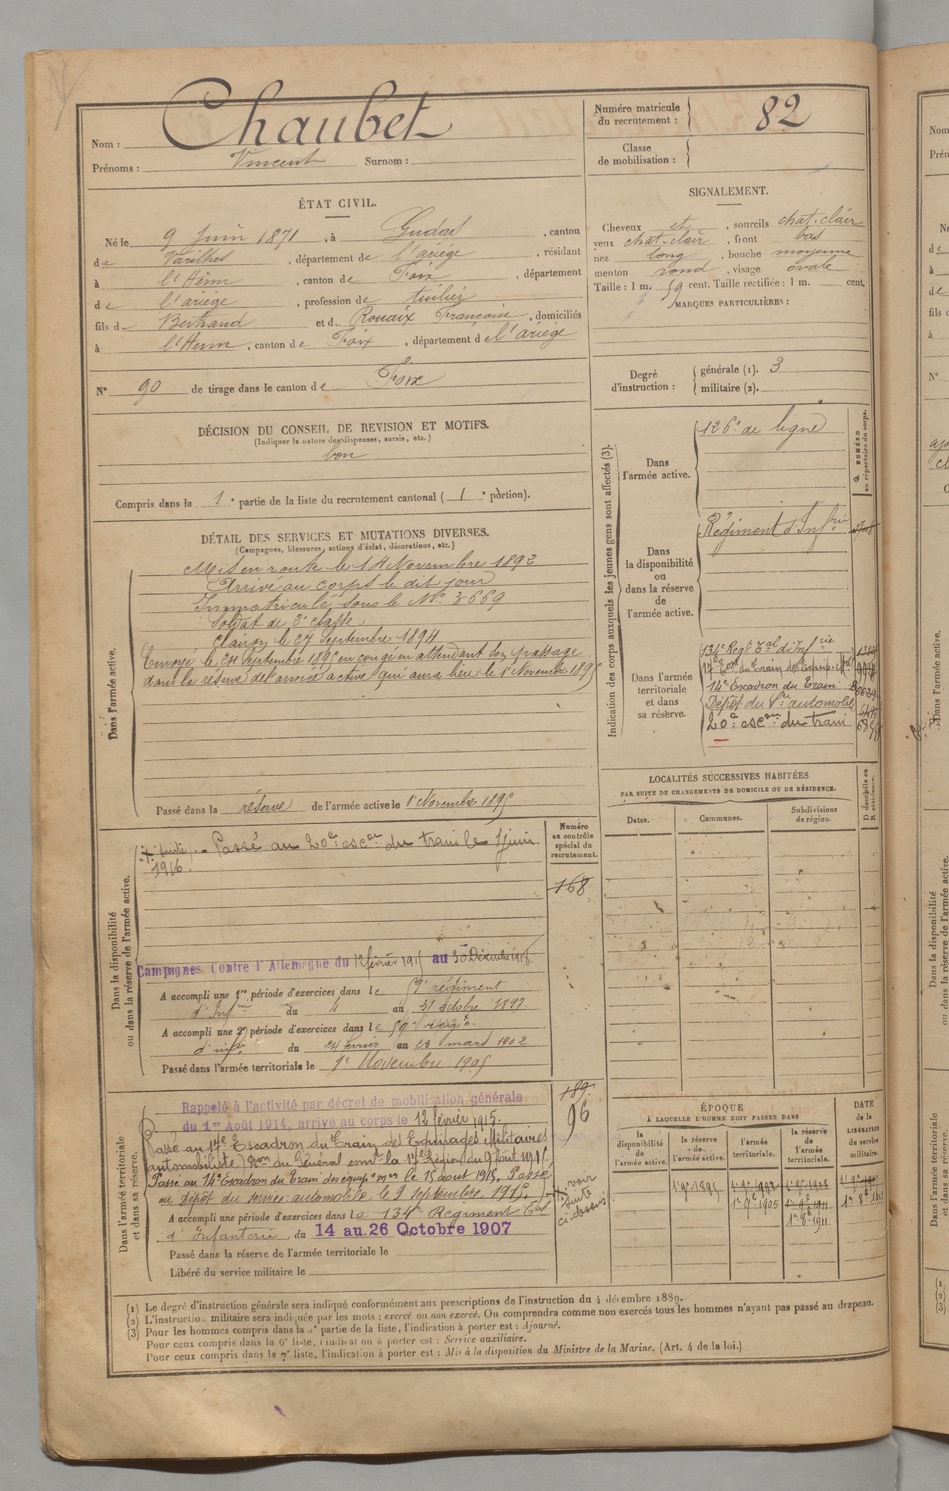 Nom : Chaubet
Prénoms : Vincent Surnom :
Numéro matricule du recrutement : 82
Classe de mobilisation :
ÉTAT CIVIL.
Né le 9 Juin 1871, à Gudas, canton
de Varilhes, département de l'ariége, résidant
à l'Herm, canton de Foix, département
de l'ariége, profession de tuilier
fils de Bertrand et d. Rouaix Françoise, domiciliés
à l'Herm, canton de Foix, département de l'ariége
N° 90 de tirage dans le canton de Foix
SIGNALEMENT.
Cheveux et, sourcils chat. clair
yeux chat. clair, front bas
nez long, bouche moyenne
menton rond, visage ovale
Taille : 1 m. 59 cent. Taille rectifiée : 1 m. cent.
MARQUES PARTICULIÈRES :
Degré d'instruction : générale (1). 3
militaire (2).
DÉCISION DU CONSEIL DE REVISION ET MOTIFS.
(Indiquer la nature des dispenses, sursis, etc.)
bon
Compris dans la 1e partie de la liste du recrutement cantonal ( 1e portion).
DÉTAIL DES SERVICES ET MUTATIONS DIVERSES.
(Campagnes, blessures, actions d'éclat, décorations, etc.)
Dans l'armée active.
Mis en route le 14 Novembre 1892
Arrivé au corps le dit jour
Immatriculé sous le N° 3669
Soldat de 2e classe
Clairon le 27 Septembre 1894
Envoyé le 24 Septembre 1895 en congé en attendant son passage
dans la réserve de l'armée active qui aura lieu le 1er Novembre 1895
Passé dans la réserve de l'armée active le 1er Novembre 1895
Indication des corps auxquels les jeunes gens sont affectés (3).
NUMÉRO au répertoire du corps.
Dans l'armée active.
126e de ligne
Dans la disponibilité ou dans la réserve de l'armée active.
Régiment d'Infrie
Dans l'armée territoriale et dans sa réserve.
134e Régt Tal d'Infrie
17e Eon du Train des Equip. Mres
14e Escadron du Train
Dépôt du Sce automobile
20e escon du train
LOCALITÉS SUCCESSIVES HABITÉES
PAR SUITE DE CHANGEMENTS DE DOMICILE OU DE RÉSIDENCE.
Dates. Communes. Subdivisions de région. D domicile ou R résidence.
Dans la disponibilité ou dans la réserve de l'armée active.
Numéro au contrôle spécial du recrutement.
(suite) - Passé au 20e escon du train le 1 juin
1916.
168
Campagnes contre l'Allemagne du 12 février 1915 au 30 Décembre 1918.
A accompli une 1re période d'exercices dans le 59e régiment
d'Infrie du 4 au 31 octobre 1897
A accompli une 2e période d'exercices dans le 59e régt
d'infie du 24 février au 23 mars 1902
Passé dans l'armée territoriale le 1er Novembre 1905
Dans l'armée territoriale et dans sa réserve.
189
96
Rappelé à l'activité par décret de mobilisation générale
du 1er Août 1914, arrivé au corps le 12 février 1915.
Passé au 17e Escadron du Train des Equipages Militaires
automobiliste Don du Général comt la 17e Région du 9 Août 1915.
Passe au 14e Escadron du Train des équip. mres le 15 aout 1915. Passé
au Dépôt du service automobile le 2 septembre 1915.
voir suite ci-dessus
A accompli une période d'exercices dans le 134e Régiment Tal
d'Infanterie du 14 au 26 Octobre 1907
Passé dans la réserve de l'armée territoriale le
Libéré du service militaire le
ÉPOQUE
A LAQUELLE L'HOMME DOIT PASSER DANS
la disponibilité de l'armée active. la réserve de l'armée active. l'armée territoriale. la réserve de l'armée territoriale.
DATE de la LIBÉRATION du service militaire.
1er 9e 1895
1er 9e 1905
1er 9e 1911
(1) Le degré d'instruction générale sera indiqué conformément aux prescriptions de l'instruction du 4 décembre 1889.
(2) L'instruction militaire sera indiquée par les mots : exercé ou non exercé. On comprendra comme non exercés tous les hommes n'ayant pas passé au drapeau.
(3) Pour les hommes compris dans la 5e partie de la liste, l'indication à porter est : Ajourné.
Pour ceux compris dans la 6e liste, l'indication à porter est : Service auxiliaire.
Pour ceux compris dans la 7e liste, l'indication à porter est : Mis à la disposition du Ministre de la Marine. (Art. 4 de la loi.)